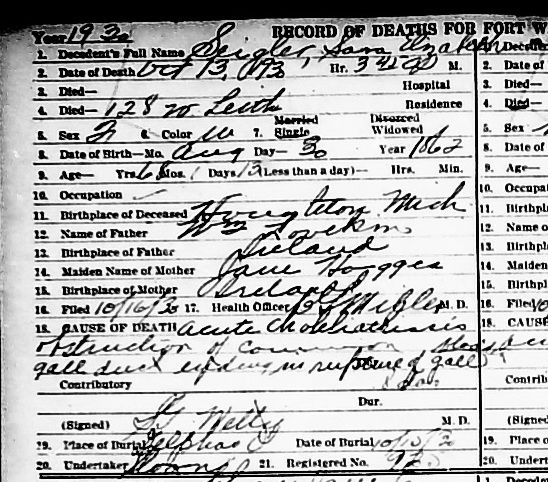 Year 1930 RECORD OF DEATHS FOR FORT W
1. Decedent's Full Name Seigler, Sara Elizabeth
2. Date of Death Oct 13, 193 Hr. 3 M.
3. Died— Hospital
4. Died— 128 W Leith Residence
5. Sex F 6. Color W 7. Married Single Divorced Widowed
8. Date of Birth—Mo. Aug Day— 30 Year 1862
9. Age— Yrs. 68 Mos. 1 Days 13 (Less than a day)— Hrs. Min.
10. Occupation
11. Birthplace of Deceased Houghton Mich
12. Name of Father Wm
13. Birthplace of Father Ireland
14. Maiden Name of Mother Jane
15. Birthplace of Mother Ireland
16. Filed 10/16/30 17. Health Officer M. D.
18. CAUSE OF DEATH acute
obstruction of common
gall duct ending in rupture of gall
Contributory
Dur.
(Signed) M. D.
19. Place of Burial Delphos O Date of Burial 10/15/30
20. Undertaker 21. Registered No.
2. Date of
3. Died—
4. Died—
5. Sex
8. Date of
9. Age—
10. Occupa
11. Birthpl
12. Name o
13. Birthpl
14. Maiden
15. Birthpl
16. Filed
18. CAUSE
Contrib
(Signed
19. Place o
20. Undert